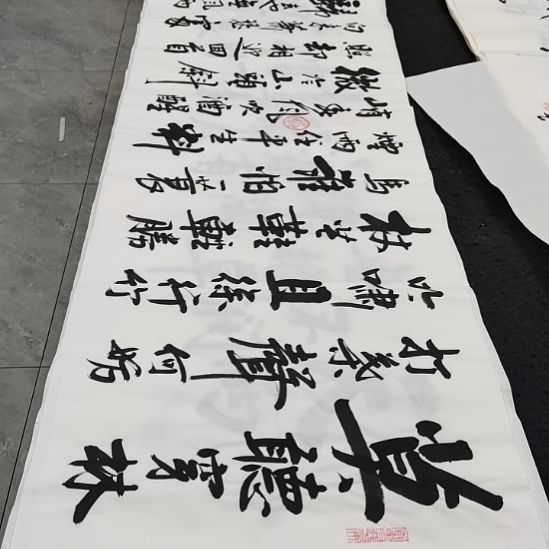 莫聽穿林
打葉聲何妨
吟嘯且徐行竹
杖芒鞋輕勝
馬誰怕一蓑
煙雨任平生料
峭春風吹酒醒
微冷山頭斜
照却相迎回首
向来蕭瑟處
歸去也無風